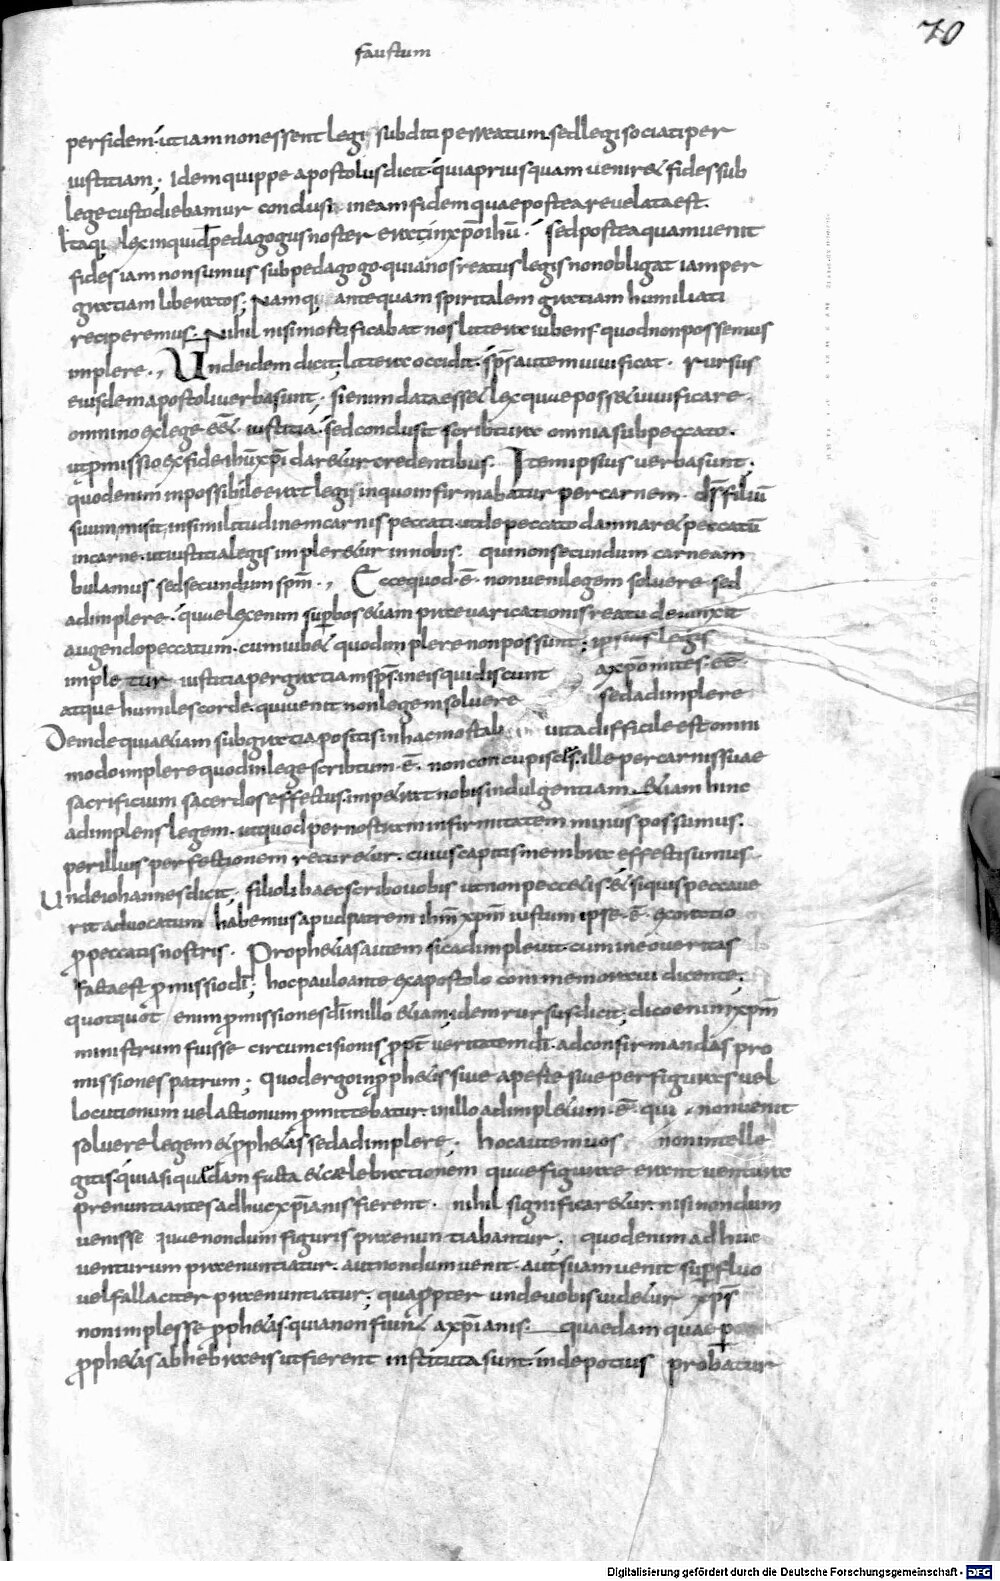 faustum
70
per fidem. ut iam non essent legi subditi per reatum. sed legi sociati per
iustitiam; Idem quippe apostolus dicit. quia priusquam veniret fides sub
lege custodiebamur conclusi in eam fidem quae postea revelata est.
Itaq; lex inquid pedagogus noster erat in xpō ihū. sed posteaquam venit
fides iam non sumus sub pedagogo. quia nos reatus legis non obligat iam per
gratiam liberatos; Namq; antequam spiritalem gratiam humiliati
reciperemus. Nihil nisi mortificabat nos littera iubens quod non possemus
implere. Unde idem dicit; littera occidit. sps autem vivificat. Rursus
eiusdem apostoli verba sunt. si enim data esset lex quae posset vivificare.
omnino ex lege eēt iustitia. sed conclusit scribtura omnia sub peccato.
ut pmissio ex fide ihū xpi daretur credentibus. Item ipsius verba sunt;
quod enim inpossibile erat legis in quo infirmabatur per carnem. ds filiū
suum misit in similitudinem carnis peccati. ut de peccato damnaret peccatū
in carne. ut iustitia legis impleretur in nobis. qui non secundum carnem am
bulamus sed secundum spm. Ecce quod ē. non veni legem solvere sed
adimplere. quae lex enim supbos etiam praevaricationis reatu devinxit
augendo peccatum. cum iubet quod implere non possunt; ipsius legis
impletur iustitia per gratiam sps. in eis qui discunt a xpo mites eē
atque humiles corde. qui venit non legem solvere sed adimplere
Deinde quia etiam sub gratia positis in hac mortali vita difficile est omni
modo implere quod in lege scribtum ē. non concupisces. ille per carnis suae
sacrificium sacerdos effectus. impetrat nobis indulgentiam. etiam hinc
adimplens legem. ut quod per nostram infirmitatem minus possumus.
per illius perfectionem recuretur. cuius capitis membra effecti sumus
Unde iohannes dicit; filioli haec scribo vobis ut non peccetis et si quis peccave
rit advocatum habemus apud patrem ihm xpm iustum ipse ē. exoratio
p peccatis nostris. Prophetias autem sic adimplevit. cum in eo veritas
facta est pmissio di; hoc paulo ante ex apostolo commemoravi dicente;
quotquot enim pmissiones di in illo etiam; idem rursus dicit; dico enim xpm
ministrum fuisse circumcisionis ppt veritatem di. ad confirmandas pro
missiones patrum; Quod ergo in pphetis sive aperte sive per figuras vel
locutionum vel actionum pmittebatur. in illo adimpletum ē. qui non venit
solvere legem et pphetas sed adimplere. hoc autem vos non intelle
gitis. quia si quaedam facta et caelebrationem quae figurae erant ventura
prenuntiantes adhuc xpianis fierent. nihil significaretur. nisi nondum
venisse quae nondum figuris praenuntiabantur. quod enim adhuc
venturum praenuntiatur. aut nondum venit. aut si iam venit supfluo
vel fallaciter praenuntiatur; quapropter unde vobis videtur xps
non implesse pphetas. quia non fiunt a xpianis. quaedam quae p
pphetas ab hebraeis ut fierent instituta sunt. inde potius probatur
Digitalisierung gefördert durch die Deutsche Forschungsgemeinschaft - DFG